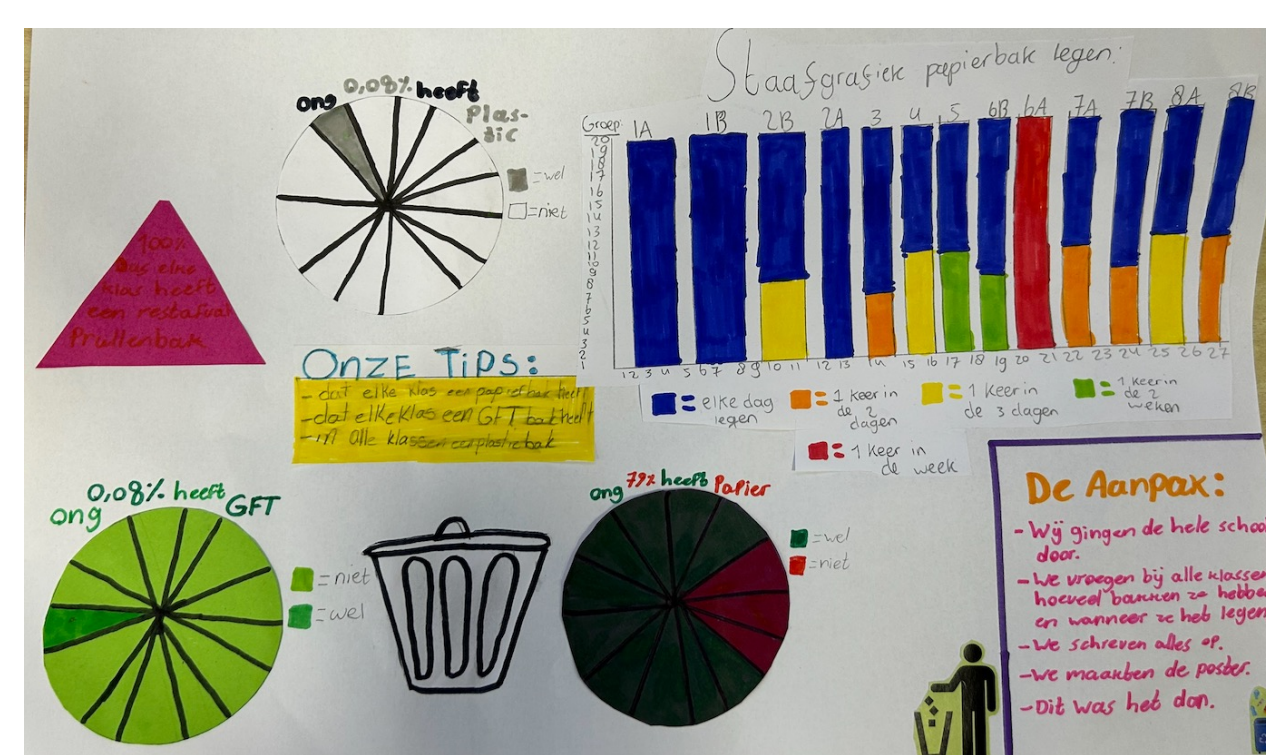 ong 0,08% heeft
Plas-
tic
= wel
= niet
100%
Dus elke
klas heeft
een restafval
Prullenbak
Staafgrafiek papierbak legen:
Groep: 1A 1B 2B 2A 3 4 5 6B 6A 7A 7B 8A 8B
20
19
18
17
16
15
14
13
12
11
10
9
8
7
6
5
4
3
2
1
1 2 3 4 5 6 7 8 9 10 11 12 13 14 15 16 17 18 19 20 21 22 23 24 25 26 27
= elke dag
legen
= 1 keer in
de 2
dagen
= 1 keer in
de 3 dagen
= 1 keer in
de 2
weken
= 1 keer in
de week
Onze Tips:
- dat elke klas een papierbak heeft
- dat elke klas een GFT bak heeft
- in alle klassen een plasticbak
ong 0,08% heeft GFT
= niet
= wel
ong 79% heeft Papier
= wel
= niet
De Aanpak:
- Wij gingen de hele school
door.
- We vroegen bij alle klassen
hoeveel bakken ze hebben
en wanneer ze het legen
- We schreven alles op.
- We maakten de poster.
- Dit was het dan.